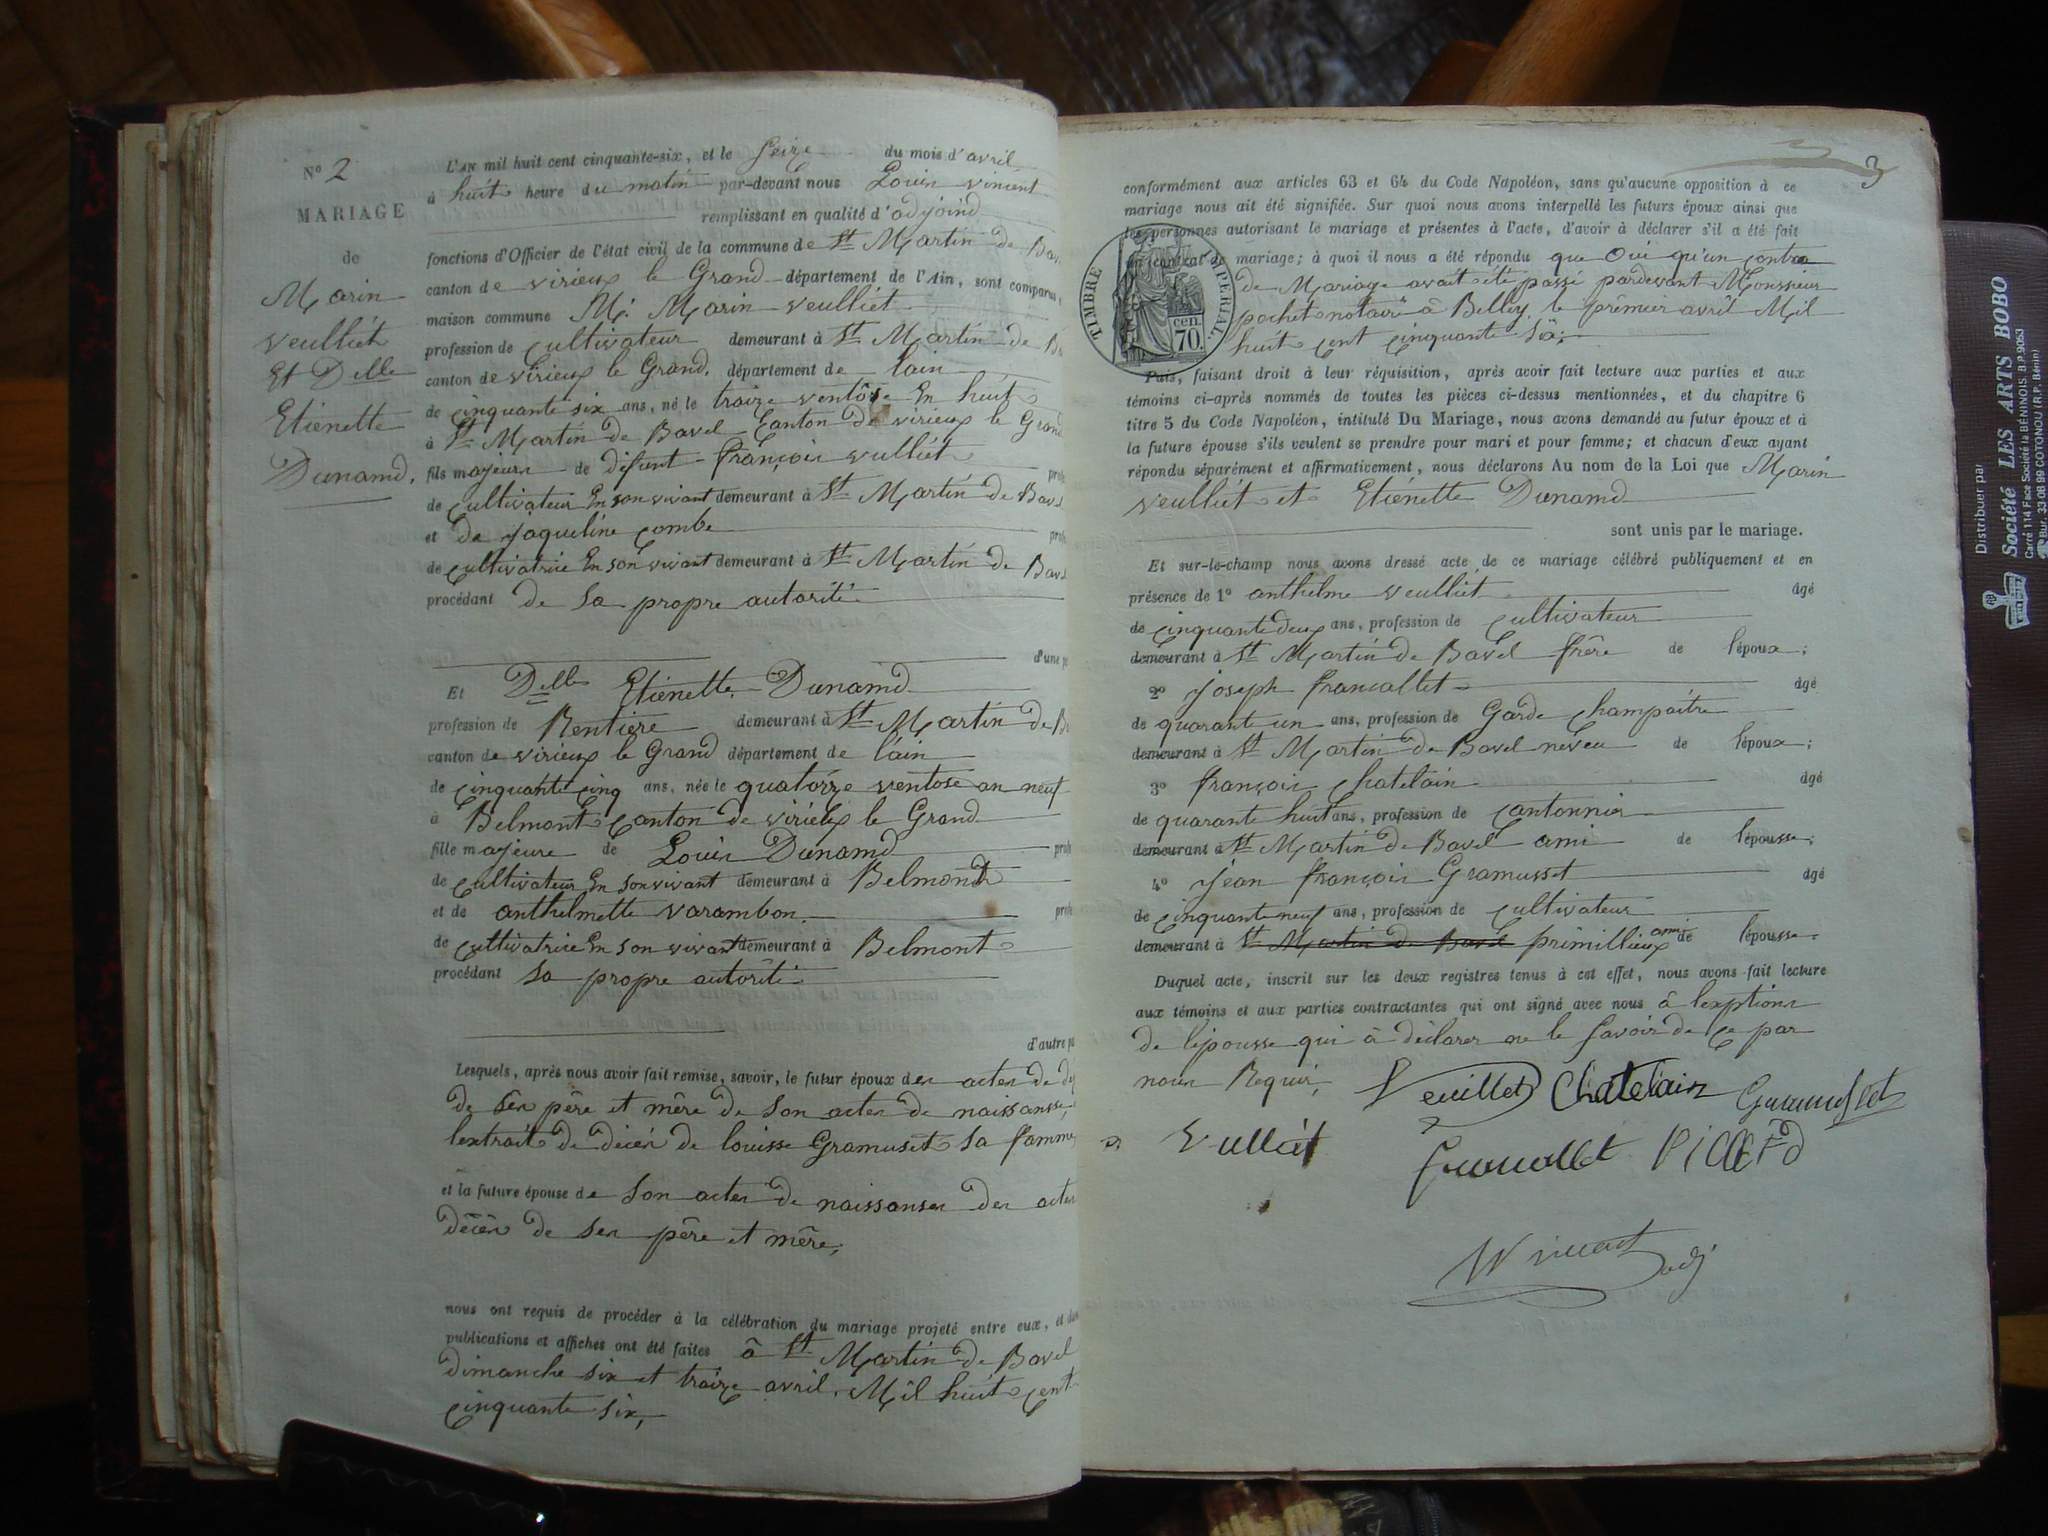 N° 2
MARIAGE
de
Marin
veulliet
Et Delle
Etiénette
Dunamd.
L'AN mil huit cent cinquante-six, et le Seize du mois d'avril
à huit heure du matin par-devant nous Louis vincent
remplissant en qualité d'adjoind
fonctions d'Officier de l'état civil de la commune de St Martin de Bav
canton de virieux le Grand département de l'Ain, sont comparus
maison commune M. Marin veulliet
profession de cultivateur demeurant à St Martin de B
canton de virieux le Grand. département de lain
de cinquante six ans, né le traize ventôse En huit
à St Martin de Bavel Canton de virieux le Grand
fils majeurs de défunt françois vulliet prof
de cultivateur En son vivant demeurant à St Martin de Bav
et de jaqueline combe prof
de cultivatrice En son vivant demeurant à St Martin de Bav
procédant de sa propre autorité
d'une pa
Et Delle Etiénette Dunamd
profession de Rentière demeurant à St Martin de B
canton de virieux le Grand département de l'ain
de cinquante cinq ans, née le quatorze ventose an neuf
à Belmont canton de virieux le Grand
fille majeure de Louis Dunamd prof
de cultivateur En son vivant demeurant à Belmont
et de anthelmette varambon. prof
de cultivatrice En son vivant demeurant à Belmont
procédant sa propre autorité
d'autre pa
Lesquels, après nous avoir fait remise, savoir, le futur époux des actes de dé
de sés père et mère de son actes de naissansse,
lextrait de décés de louisse Gramuset sa famme
et la future épouse de son actes de naissanses des actes
décés de ses père et mère,
nous ont requis de procéder à la célébration du mariage projeté entre eux, et don
publications et affiches ont été faites à St Martin de Bavel
dimanche six et traize avril, Mil huit cent
cinquante six,
3
conformément aux articles 63 et 64 du Code Napoléon, sans qu'aucune opposition à ce
mariage nous ait été signifiée. Sur quoi nous avons interpellé les futurs époux ainsi que
les personnes autorisant le mariage et présentes à l'acte, d'avoir à déclarer s'il a été fait
un contrat de mariage; à quoi il nous a été répondu que oui qu'un contra
de Mariage avait été passé pardevant Monsieur
pochet notaire à Belley le prémier avril Mil
huit cent cinquante six;
TIMBRE IMPERIAL.
70. cen.
Puis, faisant droit à leur réquisition, après avoir fait lecture aux parties et aux
témoins ci-après nommés de toutes les pièces ci-dessus mentionnées, et du chapitre 6
titre 5 du Code Napoléon, intitulé Du Mariage, nous avons demandé au futur époux et à
la future épouse s'ils veulent se prendre pour mari et pour femme; et chacun d'eux ayant
répondu séparément et affirmativement, nous déclarons Au nom de la Loi que Marin
veulliet et Etiénette Dunamd
sont unis par le mariage.
Et sur-le-champ nous avons dressé acte de ce mariage célébré publiquement et en
présence de 1° anthelme veulliet âgé
de cinquante deux ans, profession de cultivateur
demeurant à St Martin de Bavel frère de l'époux;
2° joseph francallet âgé
de quarant un ans, profession de Garde champaitre
demeurant à St Martin de Bavel neveu de l'époux;
3° françois chatelain âgé
de quarante huit ans, profession de cantonnier
demeurant à St Martin de Bavel ami de l'épousse;
4° jéan françois Gramusset âgé
de cinquante neuf ans, profession de cultivateur
demeurant à St Martin de Bavel primillieux ami de l'épousse.
Duquel acte, inscrit sur les deux registres tenus à cet effet, nous avons fait lecture
aux témoins et aux parties contractantes qui ont signé avec nous à lexptions
de lépousse qui à déclarer ne le savoir de ce par
nous Requis,
Veuillet Chatelain Gramusset
Vulliet
francallet
Vincent adj
Distribuer par
Société LES ARTS BOBO
Carré 114 Face Société la BÉNINOIS. B.P. 9053
Bur. 33.08.99 COTONOU (R.P. Bénin)